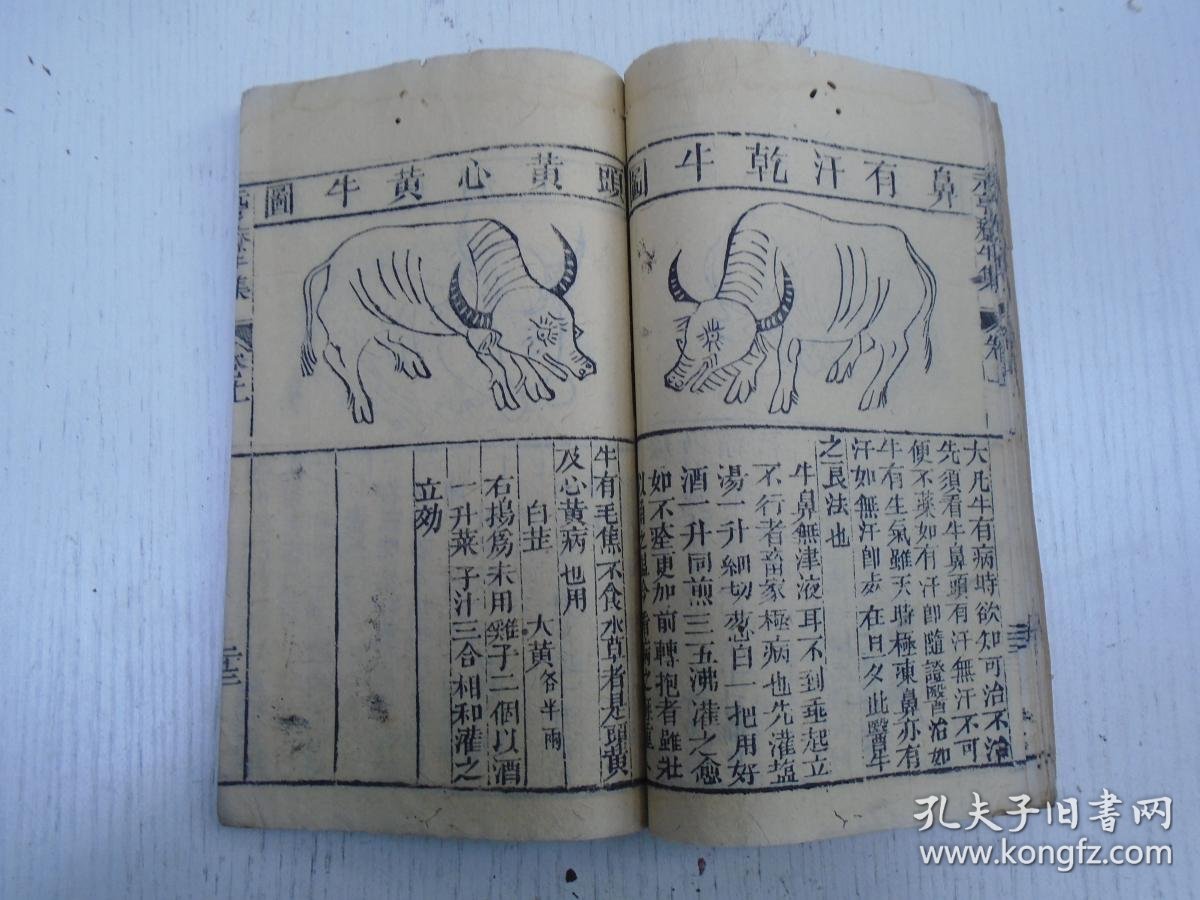 鼻有汗乾牛圖
大凡牛有病時欲知可治不治
先須看牛鼻頭有汗無汗不可
便下藥如有汗卽隨證醫治如
牛有生氣雖天時極凍鼻亦有
汗如無汗卽死在旦夕此醫牛
之良法也
牛鼻無津液耳不到垂起立
不行者畜家極病也先灌盐
湯一升細切葱白一把用好
酒一升同煎三五沸灌之愈
如不痊更加前轉抱者雖壯
頭黃心黃牛圖
牛有毛焦不食水草者是頭黃
及心黃病也用
白芷 大黃各半兩
右搗爲末用雞子二個以酒
一升菜子汁三合相和灌之
立効
二十三
孔夫子旧书网
www.kongfz.com